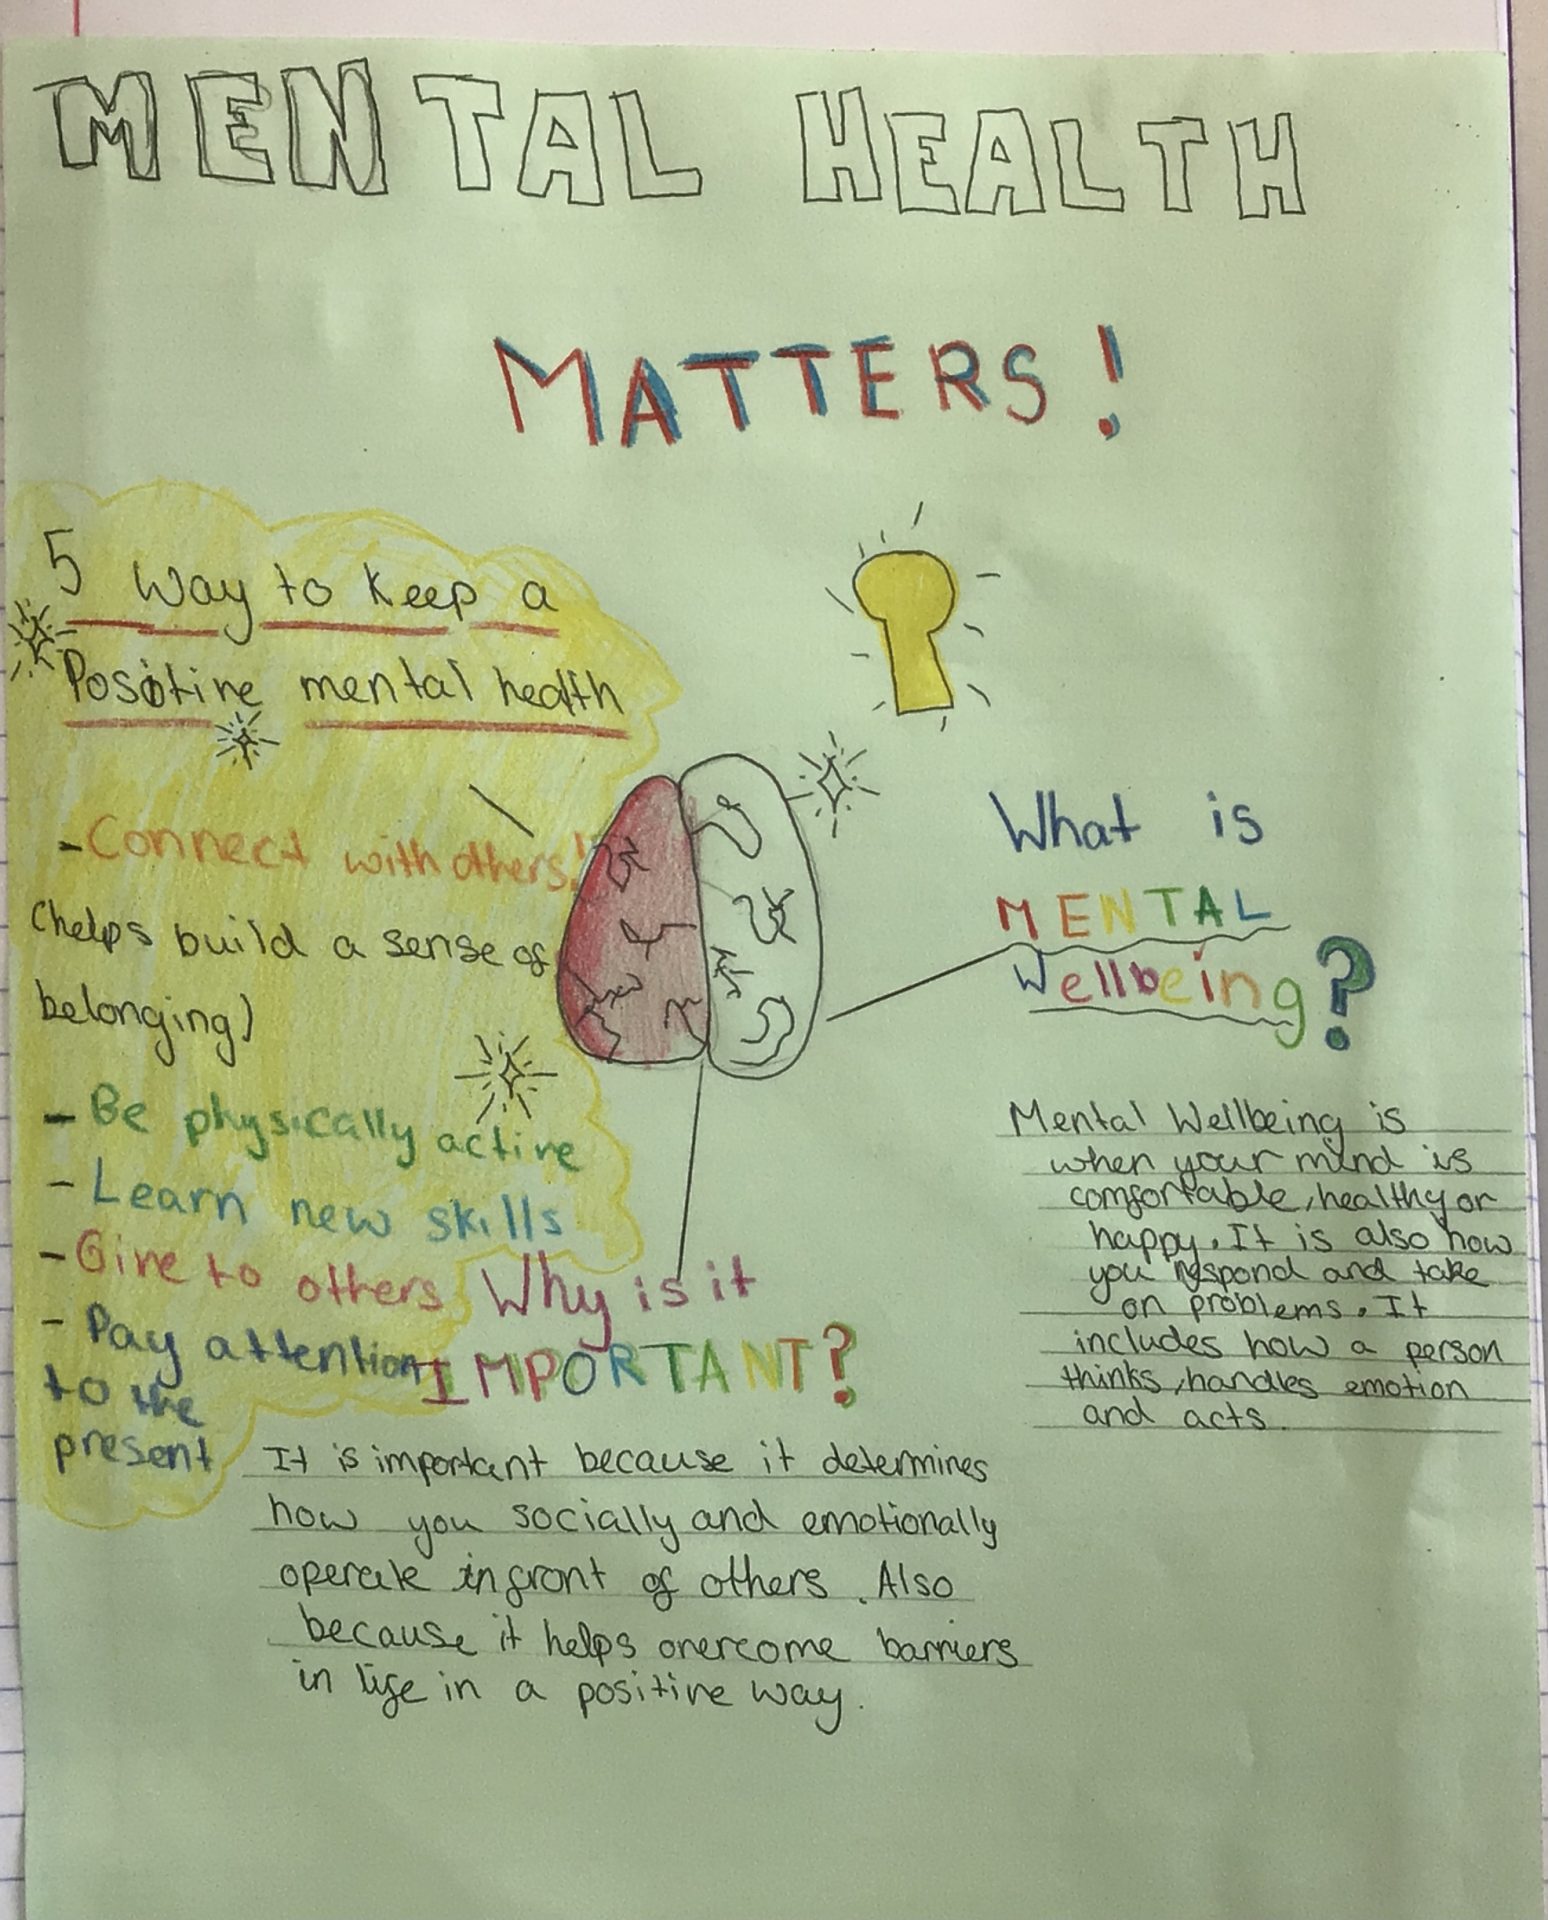 MENTAL HEALTH
MATTERS!
5 Way to keep a
Positive mental health
- Connect with others!
(helps build a sense of
belonging)
- Be physically active
- Learn new skills
- Give to others
- Pay attention
to the
present
What is
MENTAL
Wellbeing?
Mental Wellbeing is
when your mind is
comfortable, healthy or
happy. It is also how
you respond and take
on problems. It
includes how a person
thinks, handles emotion
and acts.
Why is it
IMPORTANT?
It is important because it determines
how you socially and emotionally
operate infront of others. Also
because it helps overcome barriers
in life in a positive way.